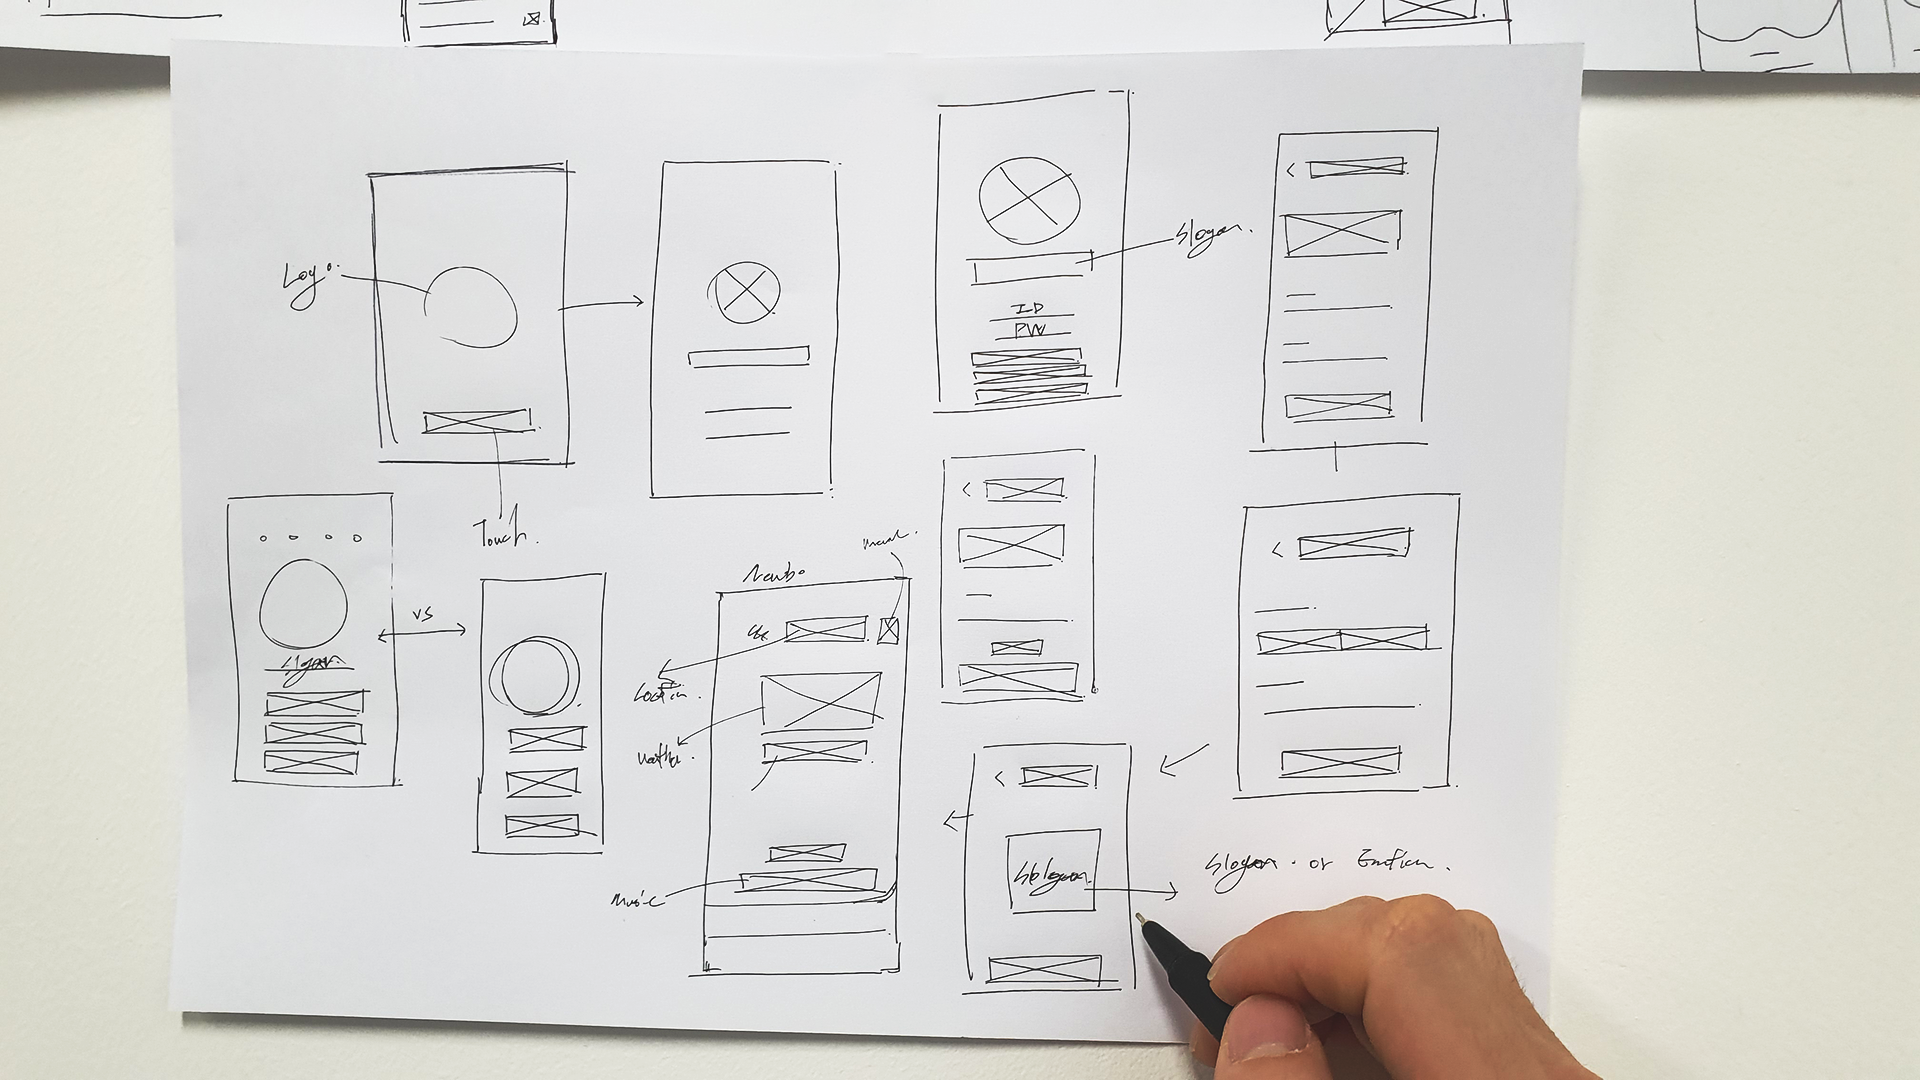 Logo.
Slogan.
ID
PW
Touch.
VS
Slogan
Location.
Weather.
Music
Slogan
Slogan. or Emotion.